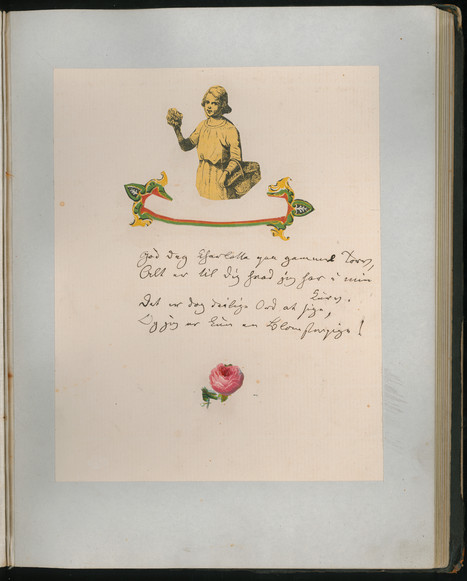 God Dag Charlotta paa gammel Torv,
Alt er til dig hvad jeg har i min
Kurv.
Det er dog deilige Ord at sige,
Og jeg er kun en Blomsterpige!